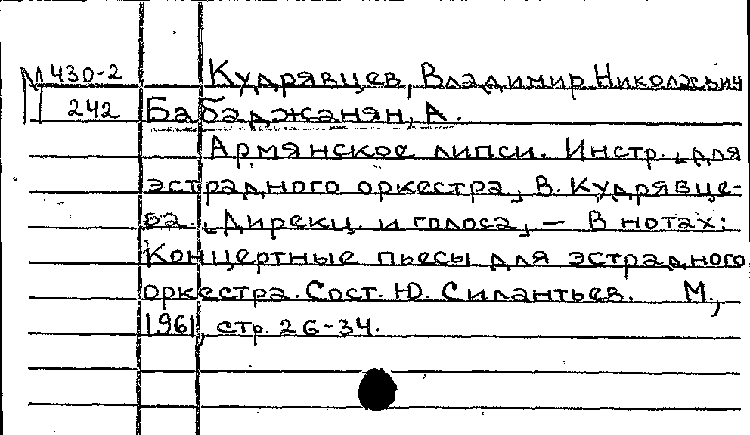 М 430-2 Кудрявцев, Владимир Николаевич
242 Бабаджанян, А.
Армянское липси. Инстр. [для
эстрадного оркестра] В. Кудрявце-
ва. [Дирекц. и голоса] — В нотах:
Концертные пьесы для эстрадного
оркестра. Сост. Ю. Силантьев. М.,
1961, стр. 26-34.